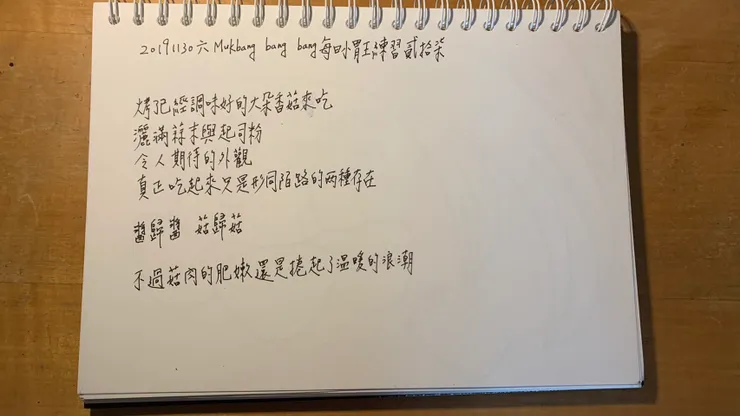 20191130六 Mukbang bang bang 每日小胃王練習貳拾柒
烤已經調味好的大朵香菇來吃
灑滿蒜末與起司粉
令人期待的外觀
真正吃起來只是形同陌路的两種存在
醬歸醬 菇歸菇
不過菇肉的肥嫩還是捲起了溫暖的浪潮